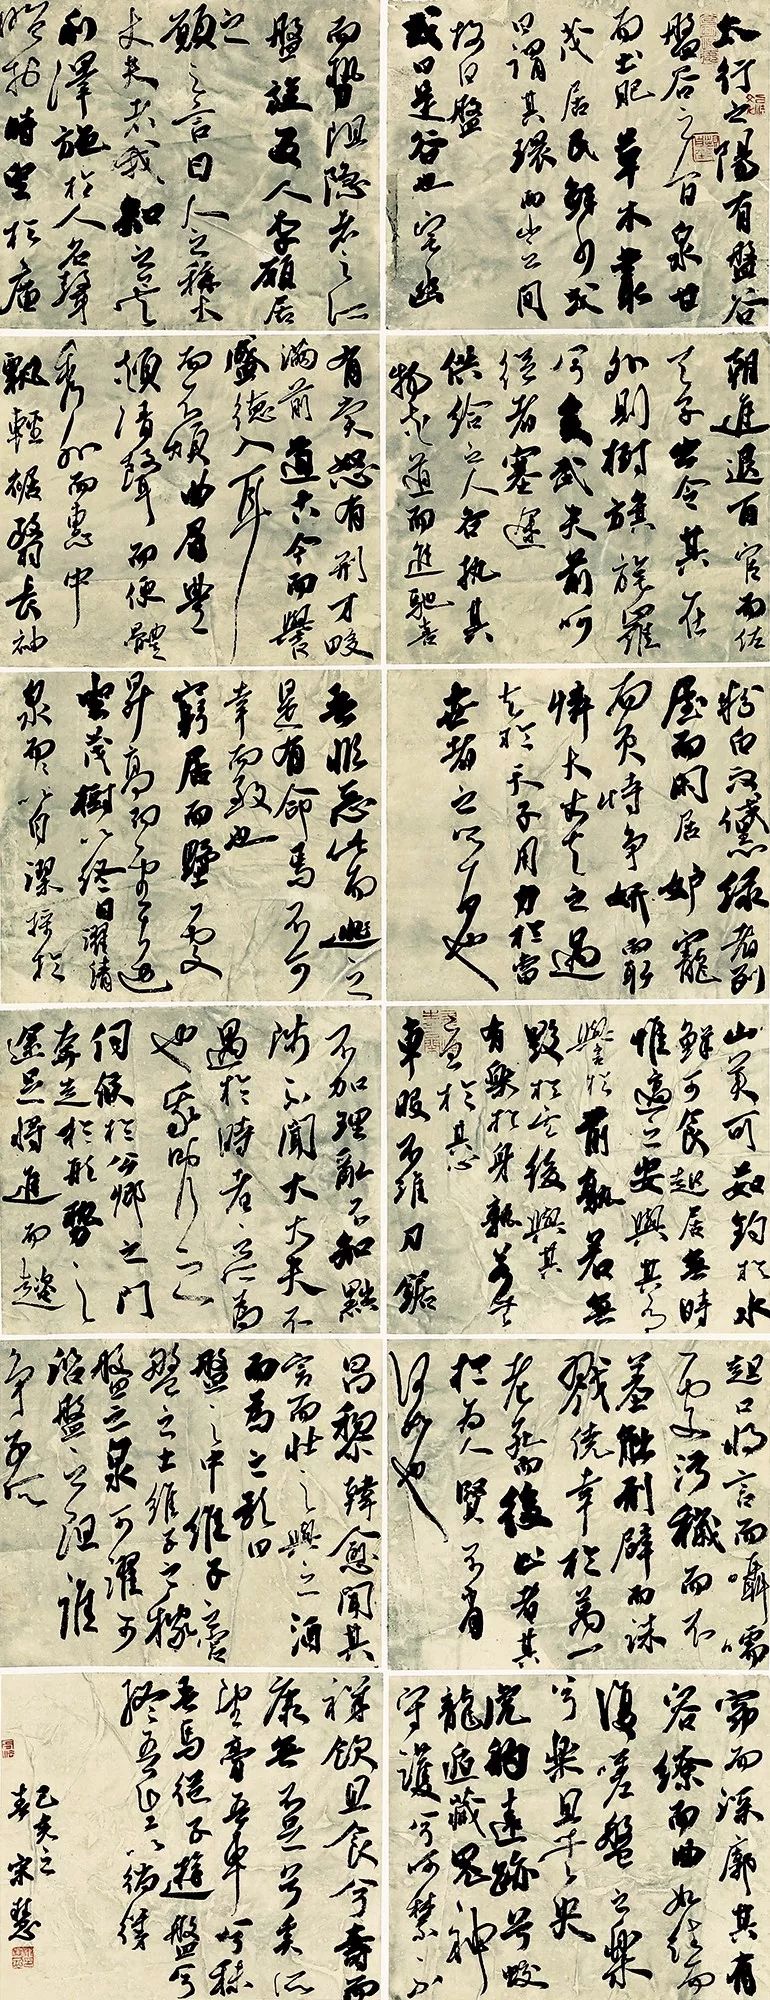 太行之陽有盤谷
盤谷之間泉甘
而土肥草木叢
茂居民鮮少或
曰謂其環兩山之間
故曰盤
或曰是谷也宅幽
而勢阻隱者之所
盤旋友人李愿居
之
愿之言曰人之稱大
丈夫者我知之矣
利澤施於人名聲
昭於時坐於廟
朝進退百官而佐
天子出令其在
外則樹旗旄羅
弓矢武夫前呵
從者塞途
供給之人各執其
物夾道而疾馳喜
有賞怒有刑才畯
滿前道古今而譽
盛德入耳
而不煩曲眉豐
頰清聲而便體
秀外而惠中
飄輕裾翳長袖
粉白黛綠者列
屋而閑居妒寵
而負恃爭妍而取
憐大丈夫之遇
知於天子用力於當
世者之所為也
吾非惡此而逃之
是有命焉不可
幸而致也
窮居而野處
昇高而望遠
坐茂樹以終日濯清
泉以自潔採於
山美可茹釣於水
鮮可食起居無時
惟適之安與其有
譽於前孰若無
毀於其後與其
有樂於身孰若無
憂於其心
車服不維刀鋸
不加理亂不知黜
陟不聞大丈夫不
遇於時者之所為
也我則行之
伺候於公卿之門
奔走於形勢之
途足將進而趑
趄口將言而囁嚅
處污穢而不
羞觸刑辟而誅
戮僥幸於萬一
老死而後止者其
於為人賢不肖
何如也
昌黎韓愈聞其
言而壯之與之酒
而為之歌曰
盤之中維子之宮
盤之土維子之稼
盤之泉可濯可
沿盤之阻誰
爭子所
窈而深廓其有
容繚而曲如往而
復嗟盤之樂
兮樂且無央
虎豹遠跡兮蛟
龍遁藏鬼神
守護兮呵禁不
祥飲且食兮壽而
康無不足兮奚所
望膏吾車兮秣
吾馬從子遊盤兮
終吾生以徜徉
己亥之
春 宋慧